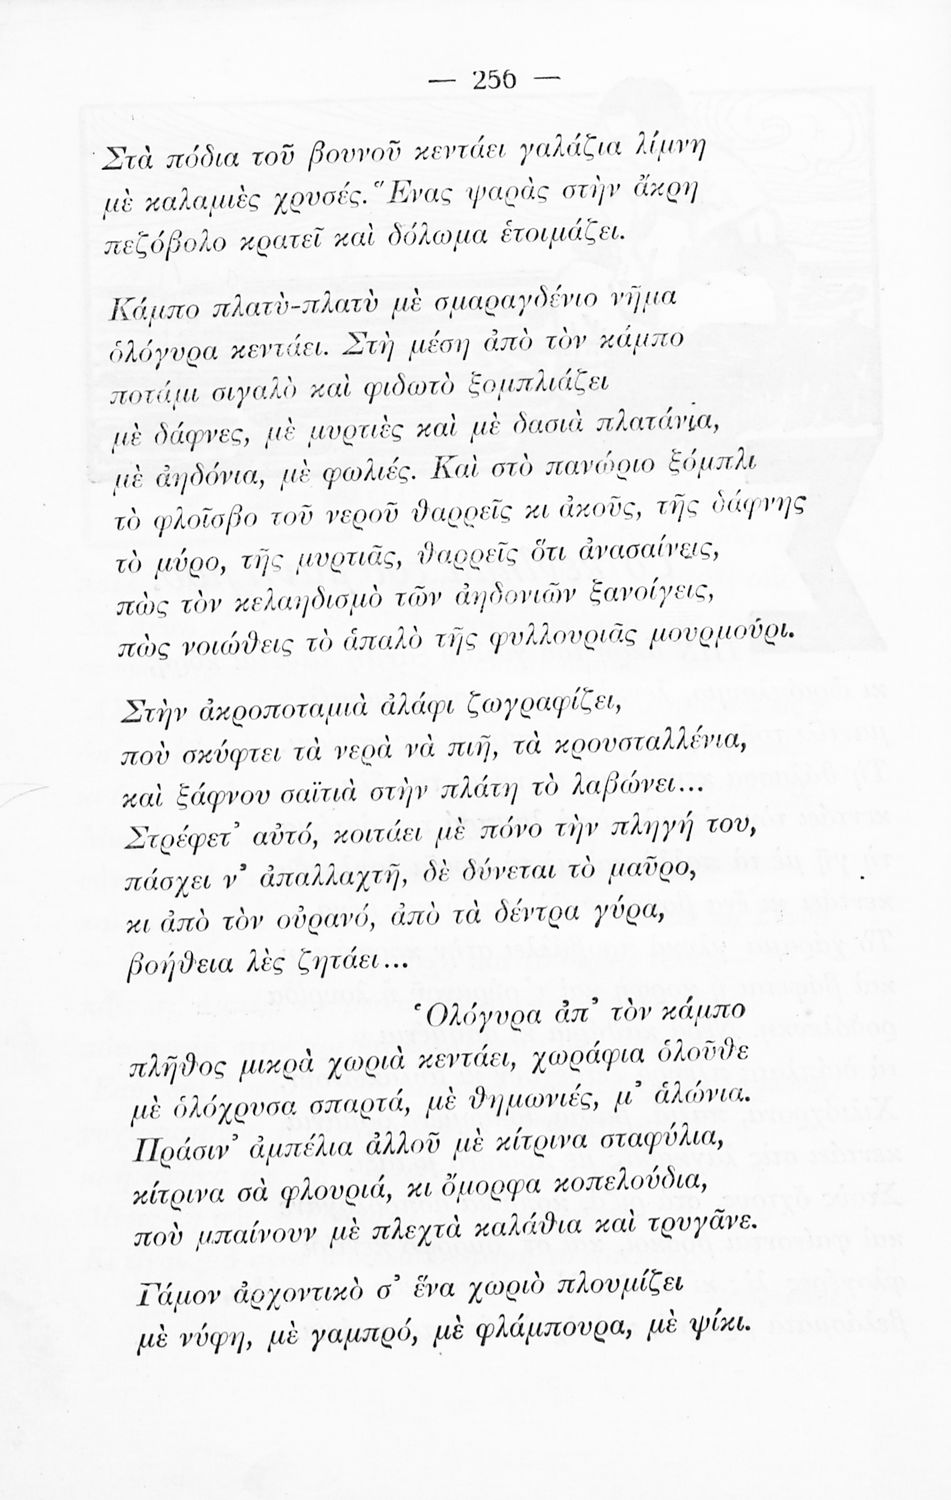 — 256 —
Στὰ πόδια τοῦ βουνοῦ κεντάει γαλάζια λίμνη
μὲ καλαμιὲς χρυσές. Ἕνας ψαρὰς στὴν ἄκρη
πεζόβολο κρατεῖ καὶ δόλωμα ἑτοιμάζει.
Κάμπο πλατὺ-πλατὺ μὲ σμαραγδένιο νῆμα
ὁλόγυρα κεντάει. Στὴ μέση ἀπὸ τὸν κάμπο
ποτάμι σιγαλὸ καὶ φιδωτὸ ξομπλιάζει
μὲ δάφνες, μὲ μυρτιὲς καὶ μὲ δασιὰ πλατάνια,
μὲ ἀηδόνια, μὲ φωλιές. Καὶ στὸ πανώριο ξόμπλι
τὸ φλοῖσβο τοῦ νεροῦ θαρρεῖς κι ἀκοῦς, τῆς δάφνης
τὸ μύρο, τῆς μυρτιᾶς, θαρρεῖς ὅτι ἀνασαίνεις,
πὼς τὸν κελαηδισμὸ τῶν ἀηδονιῶν ξανοίγεις,
πὼς νοιώθεις τὸ ἁπαλὸ τῆς φυλλουριᾶς μουρμούρι.
Στὴν ἀκροποταμιὰ ἀλάφι ζωγραφίζει,
ποὺ σκύφτει τὰ νερὰ νὰ πιῆ, τὰ κρουσταλλένια,
καὶ ξάφνου σαϊτιὰ στὴν πλάτη τὸ λαβώνει...
Στρέφετ’ αὐτό, κοιτάει μὲ πόνο τὴν πληγή του,
πάσχει ν’ ἀπαλλαχτῆ, δὲ δύνεται τὸ μαῦρο,
κι ἀπὸ τὸν οὐρανό, ἀπὸ τὰ δέντρα γύρα,
βοήθεια λὲς ζητάει...
Ὁλόγυρα ἀπ’ τὸν κάμπο
πλῆθος μικρὰ χωριὰ κεντάει, χωράφια ὁλοῦθε
μὲ ὁλόχρυσα σπαρτά, μὲ θημωνιές, μ’ ἁλώνια.
Πράσιν’ ἀμπέλια ἀλλοῦ μὲ κίτρινα σταφύλια,
κίτρινα σὰ φλουριά, κι ὄμορφα κοπελούδια,
ποὺ μπαίνουν μὲ πλεχτὰ καλάθια καὶ τρυγᾶνε.
Γάμον ἀρχοντικὸ σ’ ἕνα χωριὸ πλουμίζει
μὲ νύφη, μὲ γαμπρό, μὲ φλάμπουρα, μὲ ψίκι.